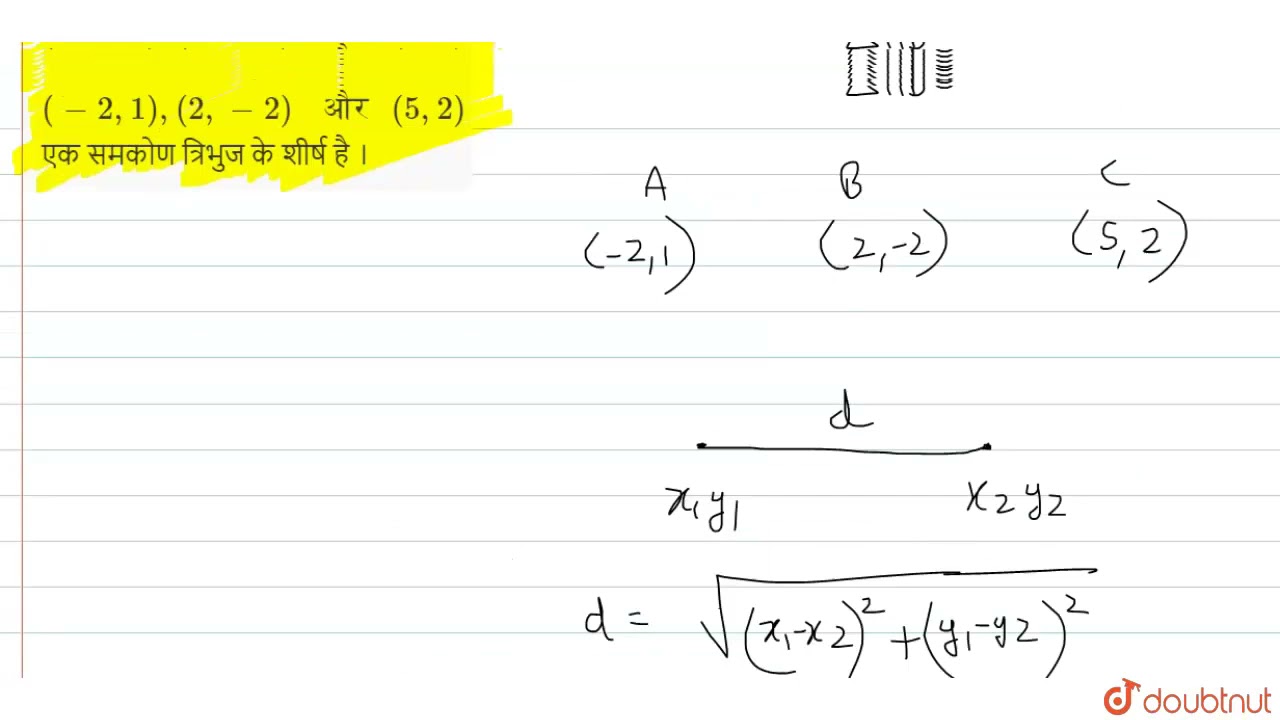 (-2,1),(2,-2) और (5,2)
एक समकोण त्रिभुज के शीर्ष है ।
A B C
(-2,1) (2,-2) (5,2)
d
x₁y₁ x₂y₂
d = √(x₁-x₂)²+(y₁-y₂)²
doubtnut